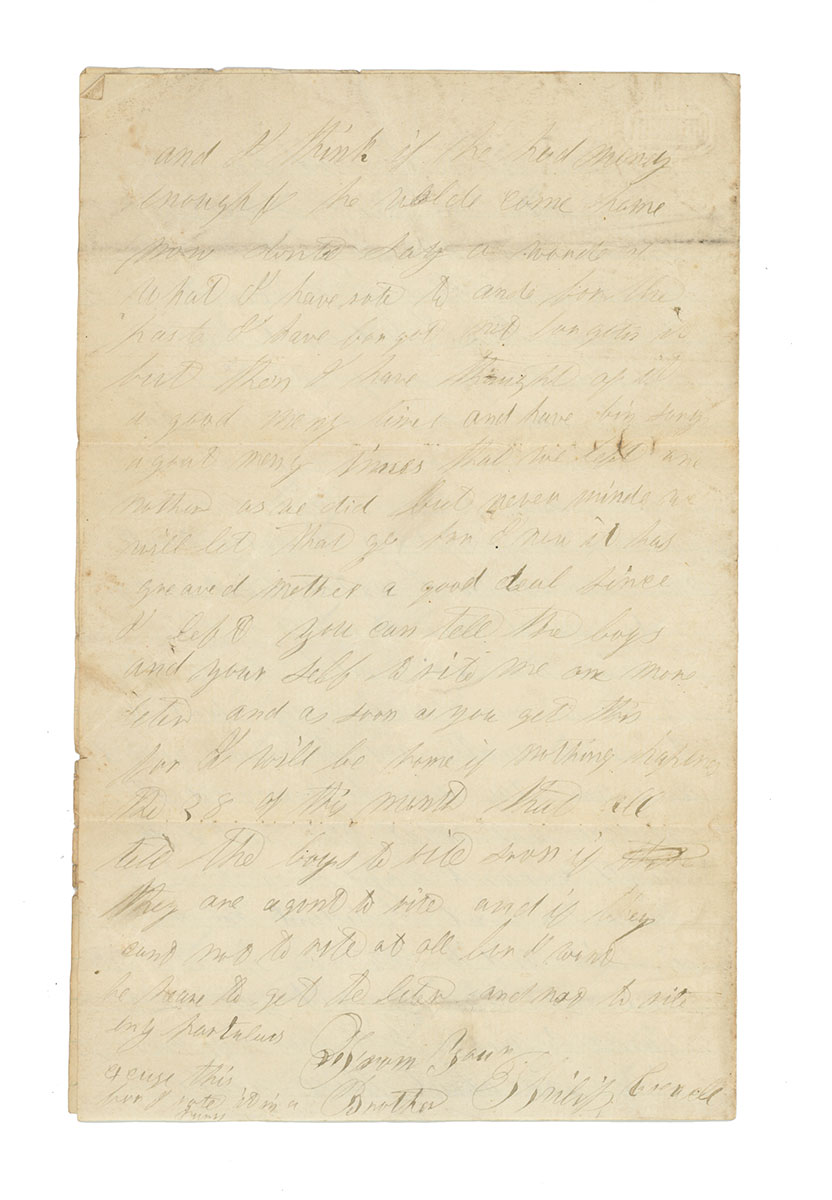 and I think if he had money
enough he wolde come home
you don't say a worde
what I have rote to and for the
past I have forgot and
but then I have thought of it
a good meny times and have bin sory
a grat meny times that we left one
nother as we did but never minde we
will let that go for I new it has
greaved mother a good deal since
I left you can tell the boys
and your self to rite me one more
leter and as soon as you get this
for I will be home if nothing hapens
the 28 of this month that all
tell the boys to rite soon if
they are agont to rite and if they
cant not to rite at all for I wont
be heare to get the leter and not to rite
eny
From Your
excuse this
for I rote it in a
Brother Philip